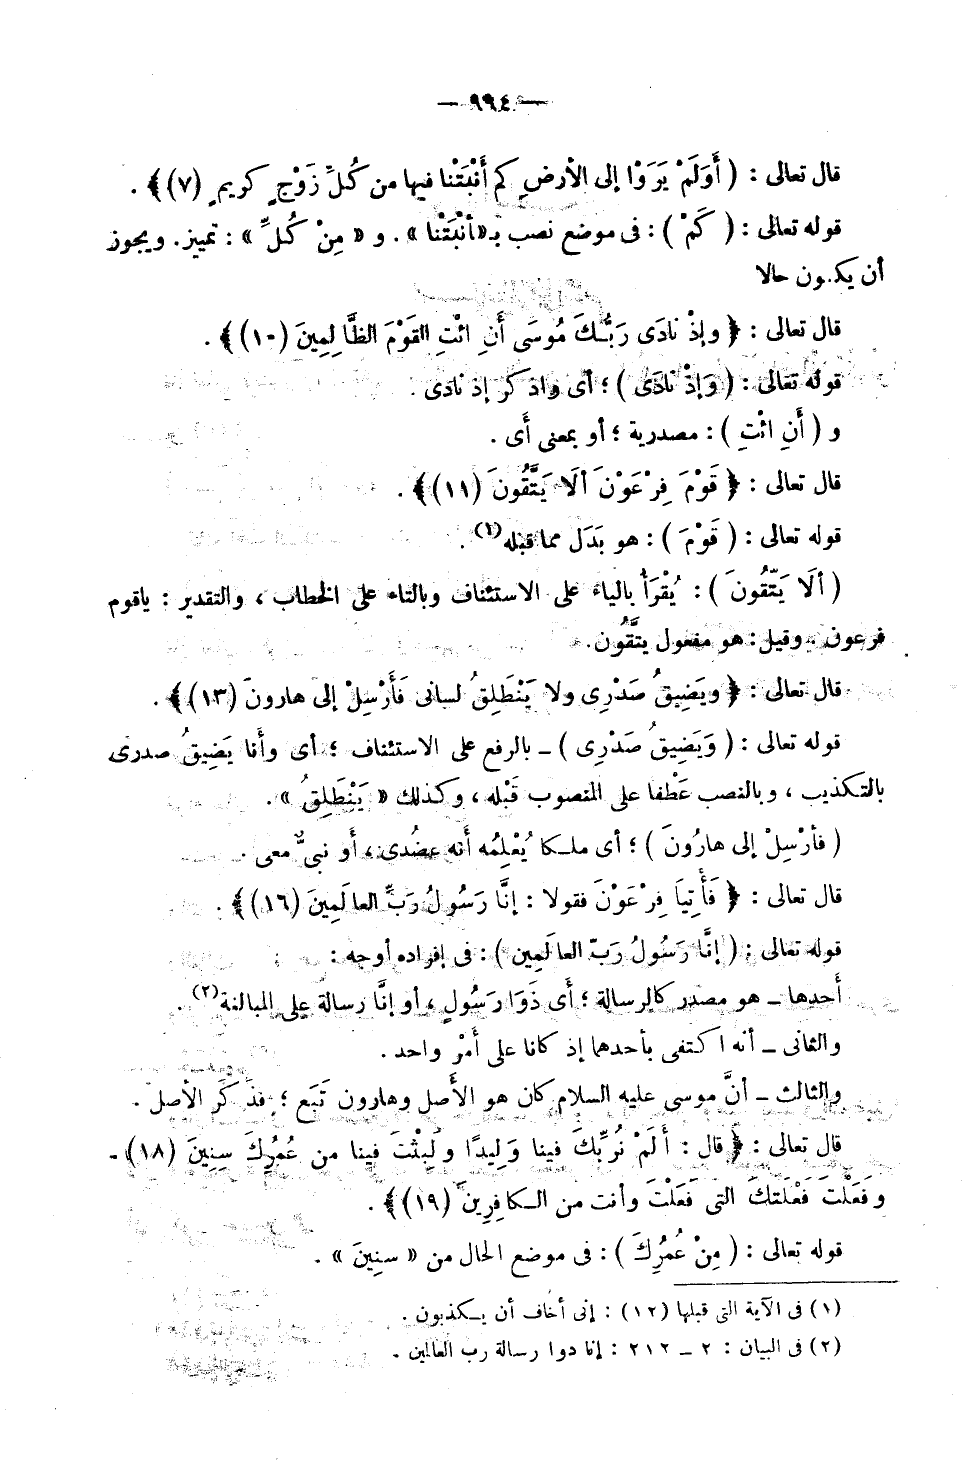 — ٩٩٤ —
قال تعالى : ( أَوَلَمْ يَرَوْا إلى الأرضِ كم أَنْبَتْنا فيها من كُلِّ زَوْجٍ كريمٍ (٧) ﴾ .
قوله تعالى : ( كَمْ ) : فى موضع نصب بـ«أنْبَتْنا » . و « مِنْ كُلِّ » : تمييز . ويجوز
أن يكون حالا
قال تعالى : ﴿ وإذْ نادَى رَبُّكَ مُوسَى أَنِ ائْتِ القَوْمَ الظَّالِمِينَ (١٠) ﴾ .
قوله تعالى : ( وَإذْ نَادَى ) ؛ أى واذكر إذ نادى .
و ( أَنِ ائْتِ ) : مصدرية ؛ أو بمعنى أى .
قال تعالى : ﴿ قَوْمَ فِرْعَوْنَ ألَا يَتَّقُونَ (١١) ﴾ .
قوله تعالى : ( قَوْمَ ) : هو بَدَل مما قبله(١) .
( ألَا يَتّقُونَ ) : يُقْرَأ بالياء على الاستئناف وبالتاء على الخطاب ، والتقدير : ياقوم
فرعون . وقيل : هو مفعول يتَّقُون .
قال تعالى : ﴿ ويَضِيقُ صَدْرِى ولا يَنْطَلِقُ لسانى فَأَرْسِلْ إلى هارونَ (١٣) ﴾ .
قوله تعالى : ( وَيَضِيقُ صَدْرِى ) ـ بالرفع على الاستئناف ؛ أى وأنا يَضِيقُ صدرى
بالتكذيب ، وبالنصب عَطْفا على المنصوب قَبْله ، وكذلك « يَنْطَلِقُ » .
( فأرْسِلْ إلى هارُونَ ) ؛ أى ملكا يُعْلِمُه أنه عضُدى ، أو نبىٌّ معى .
قال تعالى : ﴿ فَأْتِيَا فِرْعَوْنَ فقولا : إنَّا رَسُولُ رَبِّ العالَمِينَ (١٦) ﴾ .
قوله تعالى : ( إنَّا رَسُولُ رَبّ العالَمِين ) : فى إفراده أوجه :
أحدها ـ هو مصدر كالرسالة ؛ أى ذَوَا رَسُولٍ ، أو إنَّا رسالة على المبالغة(٢) .
والثانى ـ أنه اكتفى بأحدهما إذ كانا على أَمْرٍ واحد .
والثالث ـ أنَّ موسى عليه السلام كان هو الأَصل وهارون تَبَع ؛ فذكَر الأصل .
قال تعالى : ﴿ قال : أَلَمْ نُرَبِّكَ فينا وَلِيدًا ولَبِثْتَ فِينا من عُمُرِكَ سِنِينَ (١٨) .
وفَعَلْتَ فَعْلَتكَ التى فَعَلْتَ وأنت من الـكافِرِينَ (١٩) ﴾ .
قوله تعالى : ( مِنْ عُمُرِكَ ) : فى موضع الحال من « سنِينَ » .
(١) فى الآية التى قبلها (١٢) : إنى أخاف أن يـكذبون .
(٢) فى البيان : ٢ ـ ٢١٢ : إنا ذوا رسالة رب العالمين .